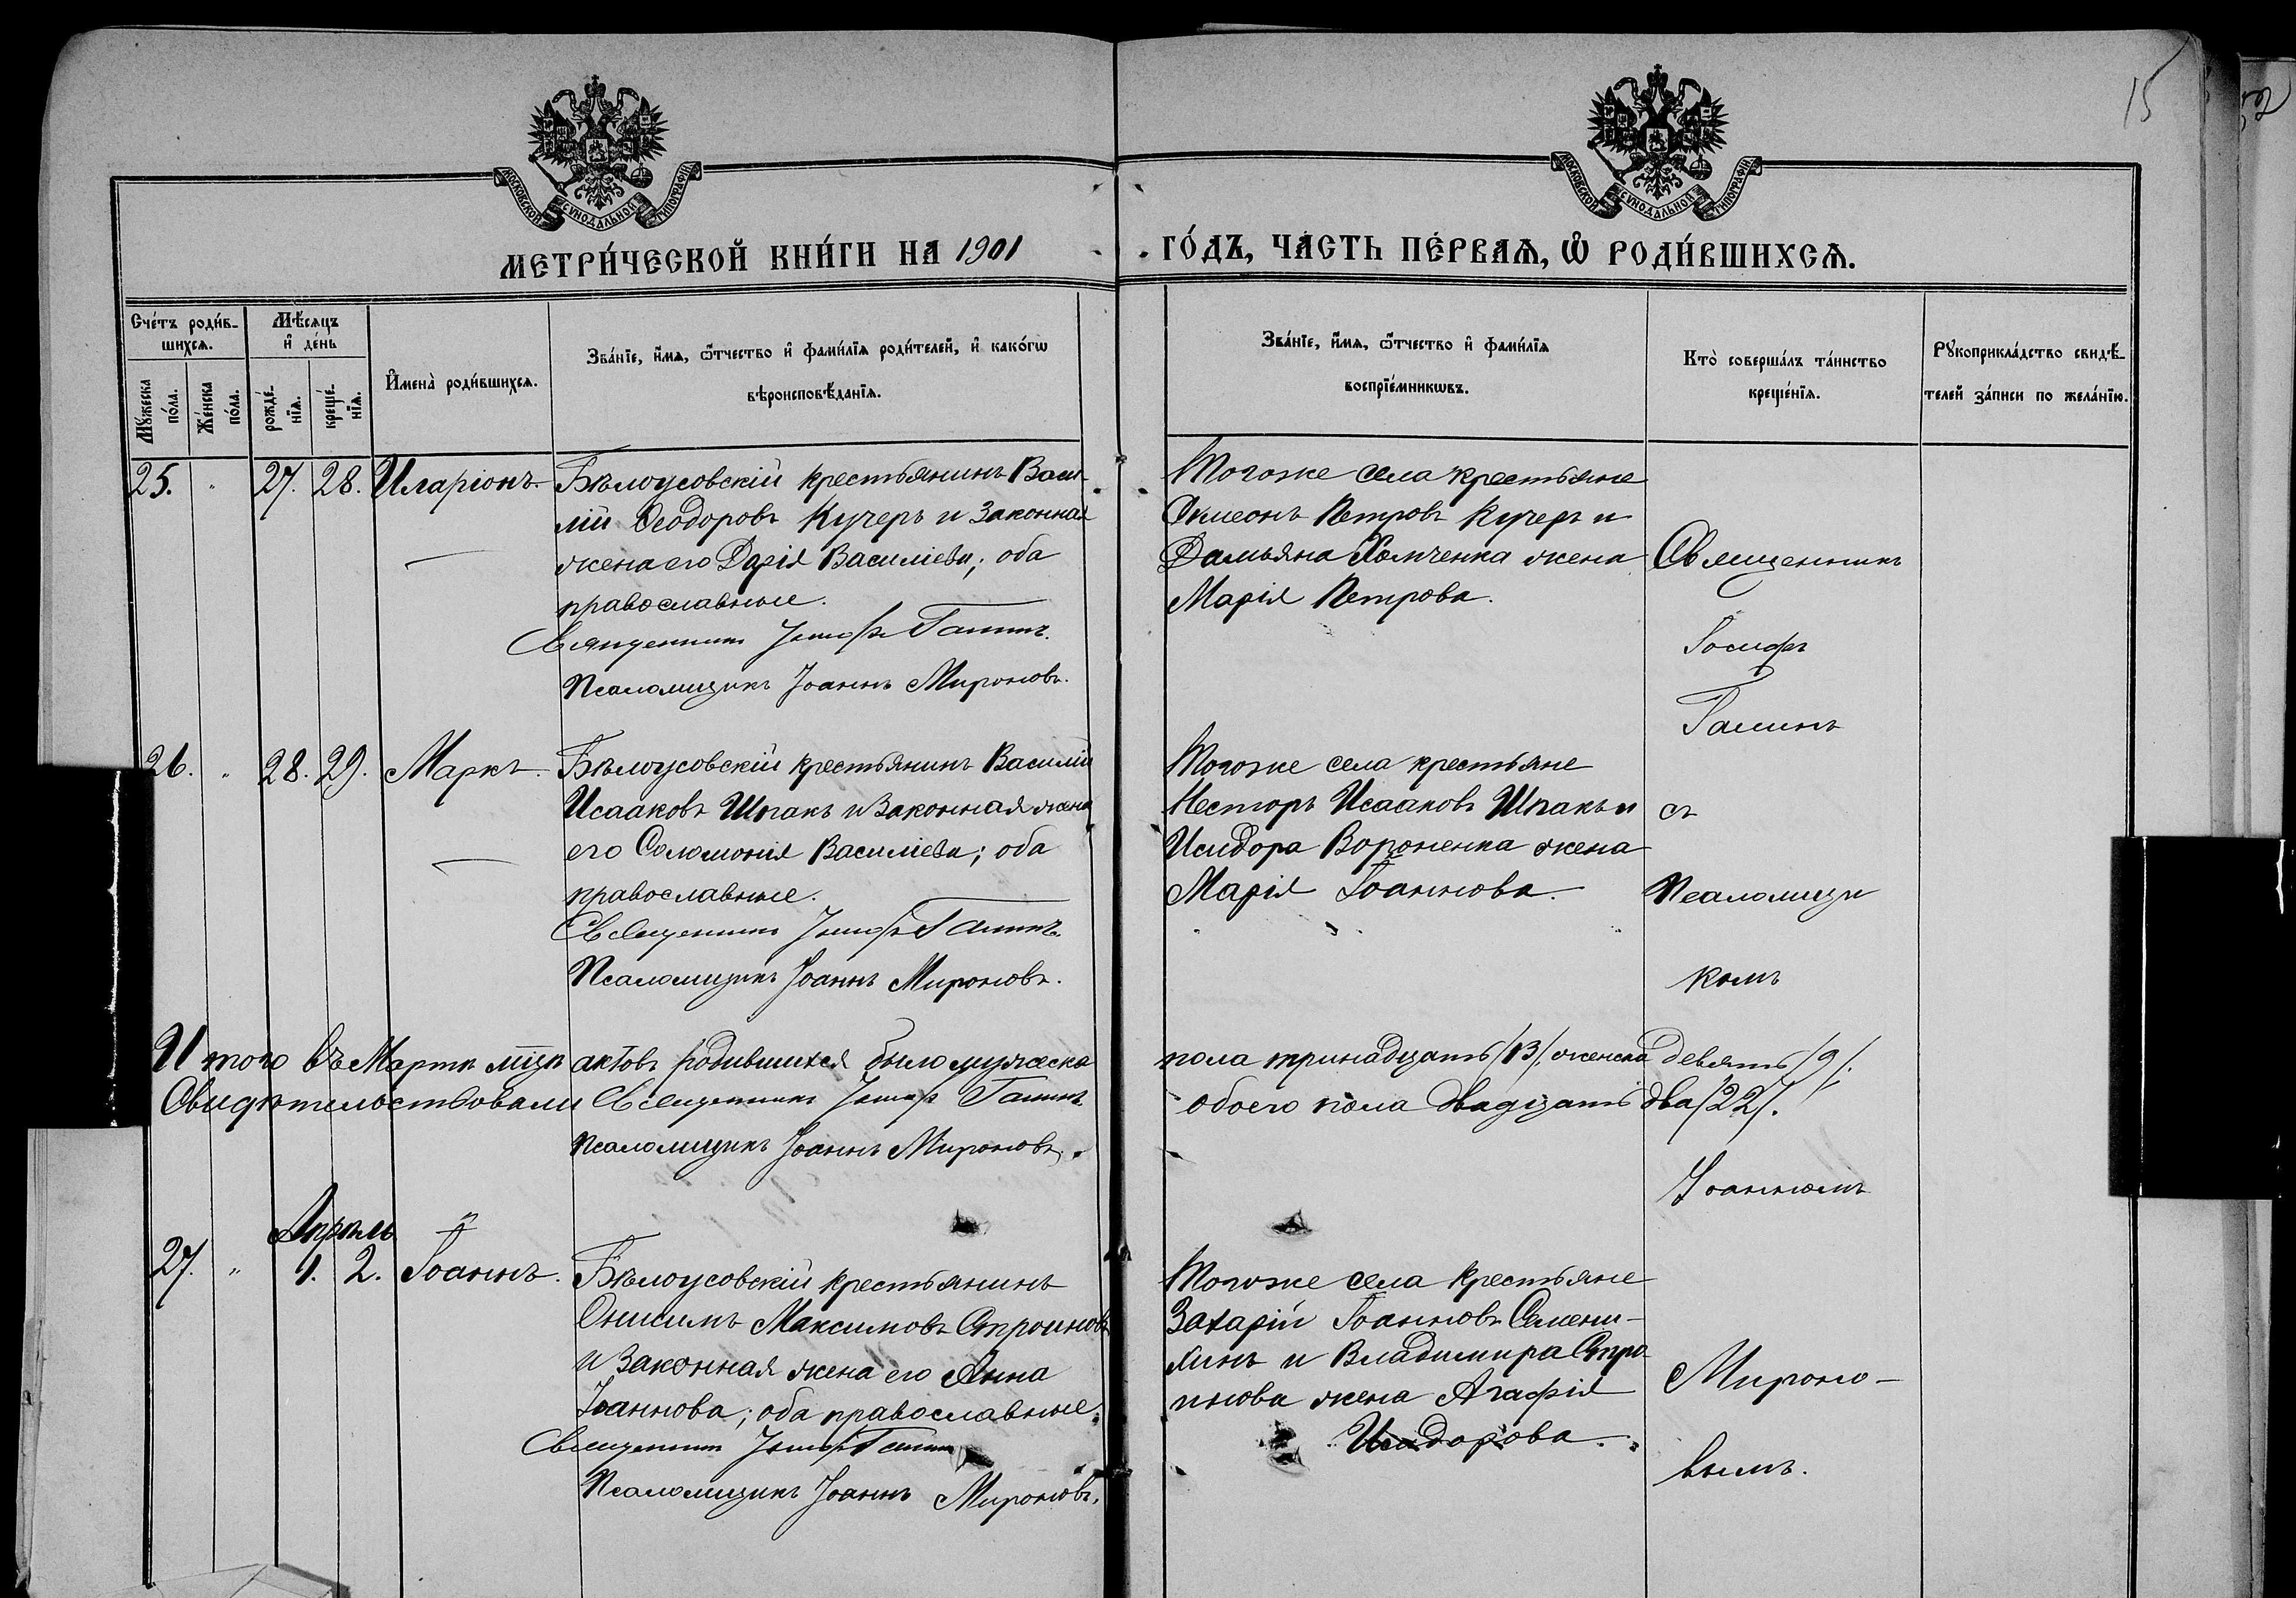 15
МОСКОВСКОЙ СУНОДАЛЬНОЙ ТИПОГРАФІИ
МОСКОВСКОЙ СУНОДАЛЬНОЙ ТИПОГРАФІИ
МЕТРИ́ЧЕСКОЙ КНИ́ГИ НА 1901
ГО́ДЪ, ЧА́СТЬ ПЕ́РВАѦ, Ѡ҆ РОДИ́ВШИХСѦ.
Сче́тъ роди́в-
шихсѧ.
Мꙋ́жеска
по́ла.
Же́нска
по́ла.
Мѣ́сѧцъ
и҆ де́нь
рожде́-
нїѧ.
креще́-
нїѧ.
И҆мена̀ роди́вшихсѧ.
Зва́нїе, и҆́мѧ, ѻ҆́тчество и҆ фами́лїѧ роди́телей, и҆ како́гѡ
вѣроисповѣ́данїѧ.
Зва́нїе, и҆́мѧ, ѻ҆́тчество и҆ фами́лїѧ
воспрїе́мникѡвъ.
Кто̀ соверша́лъ та́инство
креще́нїѧ.
Рꙋкоприкла́дство свидѣ́-
телей за́писи по жела́нїю.
25. " 27. 28. Иларіонъ.
Бѣлоусовскій крестьянинъ Васи-
лій Ѳеодоровъ Кучеръ и законная
жена его Дарія Василіева; оба
православные.
Священникъ Іосифъ Галинъ.
Псаломщикъ Іоаннъ Мироновъ.
Тогоже села крестьяне
Симеонъ Петровъ Кучеръ и
Дамьяна Хомченка жена
Марія Петрова.
Священникъ
Іосифъ
Галинъ
26. " 28. 29. Маркъ.
Бѣлоусовскій крестьянинъ Василій
Исааковъ Шпакъ и законная жена
его Соломонія Василіева; оба
православные.
Священникъ Іосифъ Галинъ.
Псаломщикъ Іоаннъ Мироновъ.
Тогоже села крестьяне
Несторъ Исааковъ Шпакъ и
Исидора Вороненка жена
Марія Іоаннова.
съ
Псаломщи
комъ
Итого въ Мартѣ мцѣ актовъ родившихся было мужеска
пола тринадцать /13/, женска девять /9/.
Свидѣтельствовали Священникъ Іосифъ Галинъ
обоего пола двадцать два /22/.
Псаломщикъ Іоаннъ Мироновъ.
Іоанномъ
Апрѣль
27. " 1. 2. Іоаннъ.
Бѣлоусовскій крестьянинъ
Онисимъ Максимовъ Строиновъ
и законная жена его Анна
Іоаннова; оба православные.
Священникъ Іосифъ Галинъ
Псаломщикъ Іоаннъ Мироновъ.
Тогоже села крестьяне
Захарій Іоанновъ Семени-
хинъ и Владимира Стро-
инова жена Агафія
Исидорова.
Мироно-
вымъ.